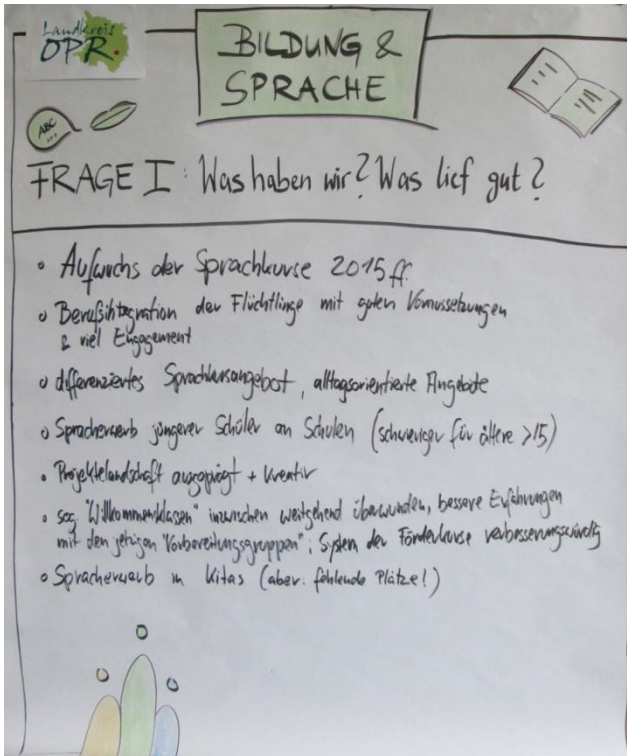 Landkreis
OPR.
BILDUNG &
SPRACHE
ABC
...
FRAGE I: Was haben wir? Was lief gut?
• Aufwuchs der Sprachkurse 2015 ff.
• Berufsintegration der Flüchtlinge mit guten Voraussetzungen
& viel Engagement
• differenziertes Sprachkursangebot, alltagsorientierte Angebote
• Spracherwerb jüngerer Schüler an Schulen (schwieriger für ältere >15)
• Projektelandschaft ausgeprägt + kreativ
• sog. "Willkommensklassen" inzwischen weitgehend überwunden, bessere Erfahrungen
mit den jetzigen "Vorbereitungsgruppen"; System der Förderkurse verbesserungswürdig
• Spracherwerb in Kitas (aber: fehlende Plätze!)